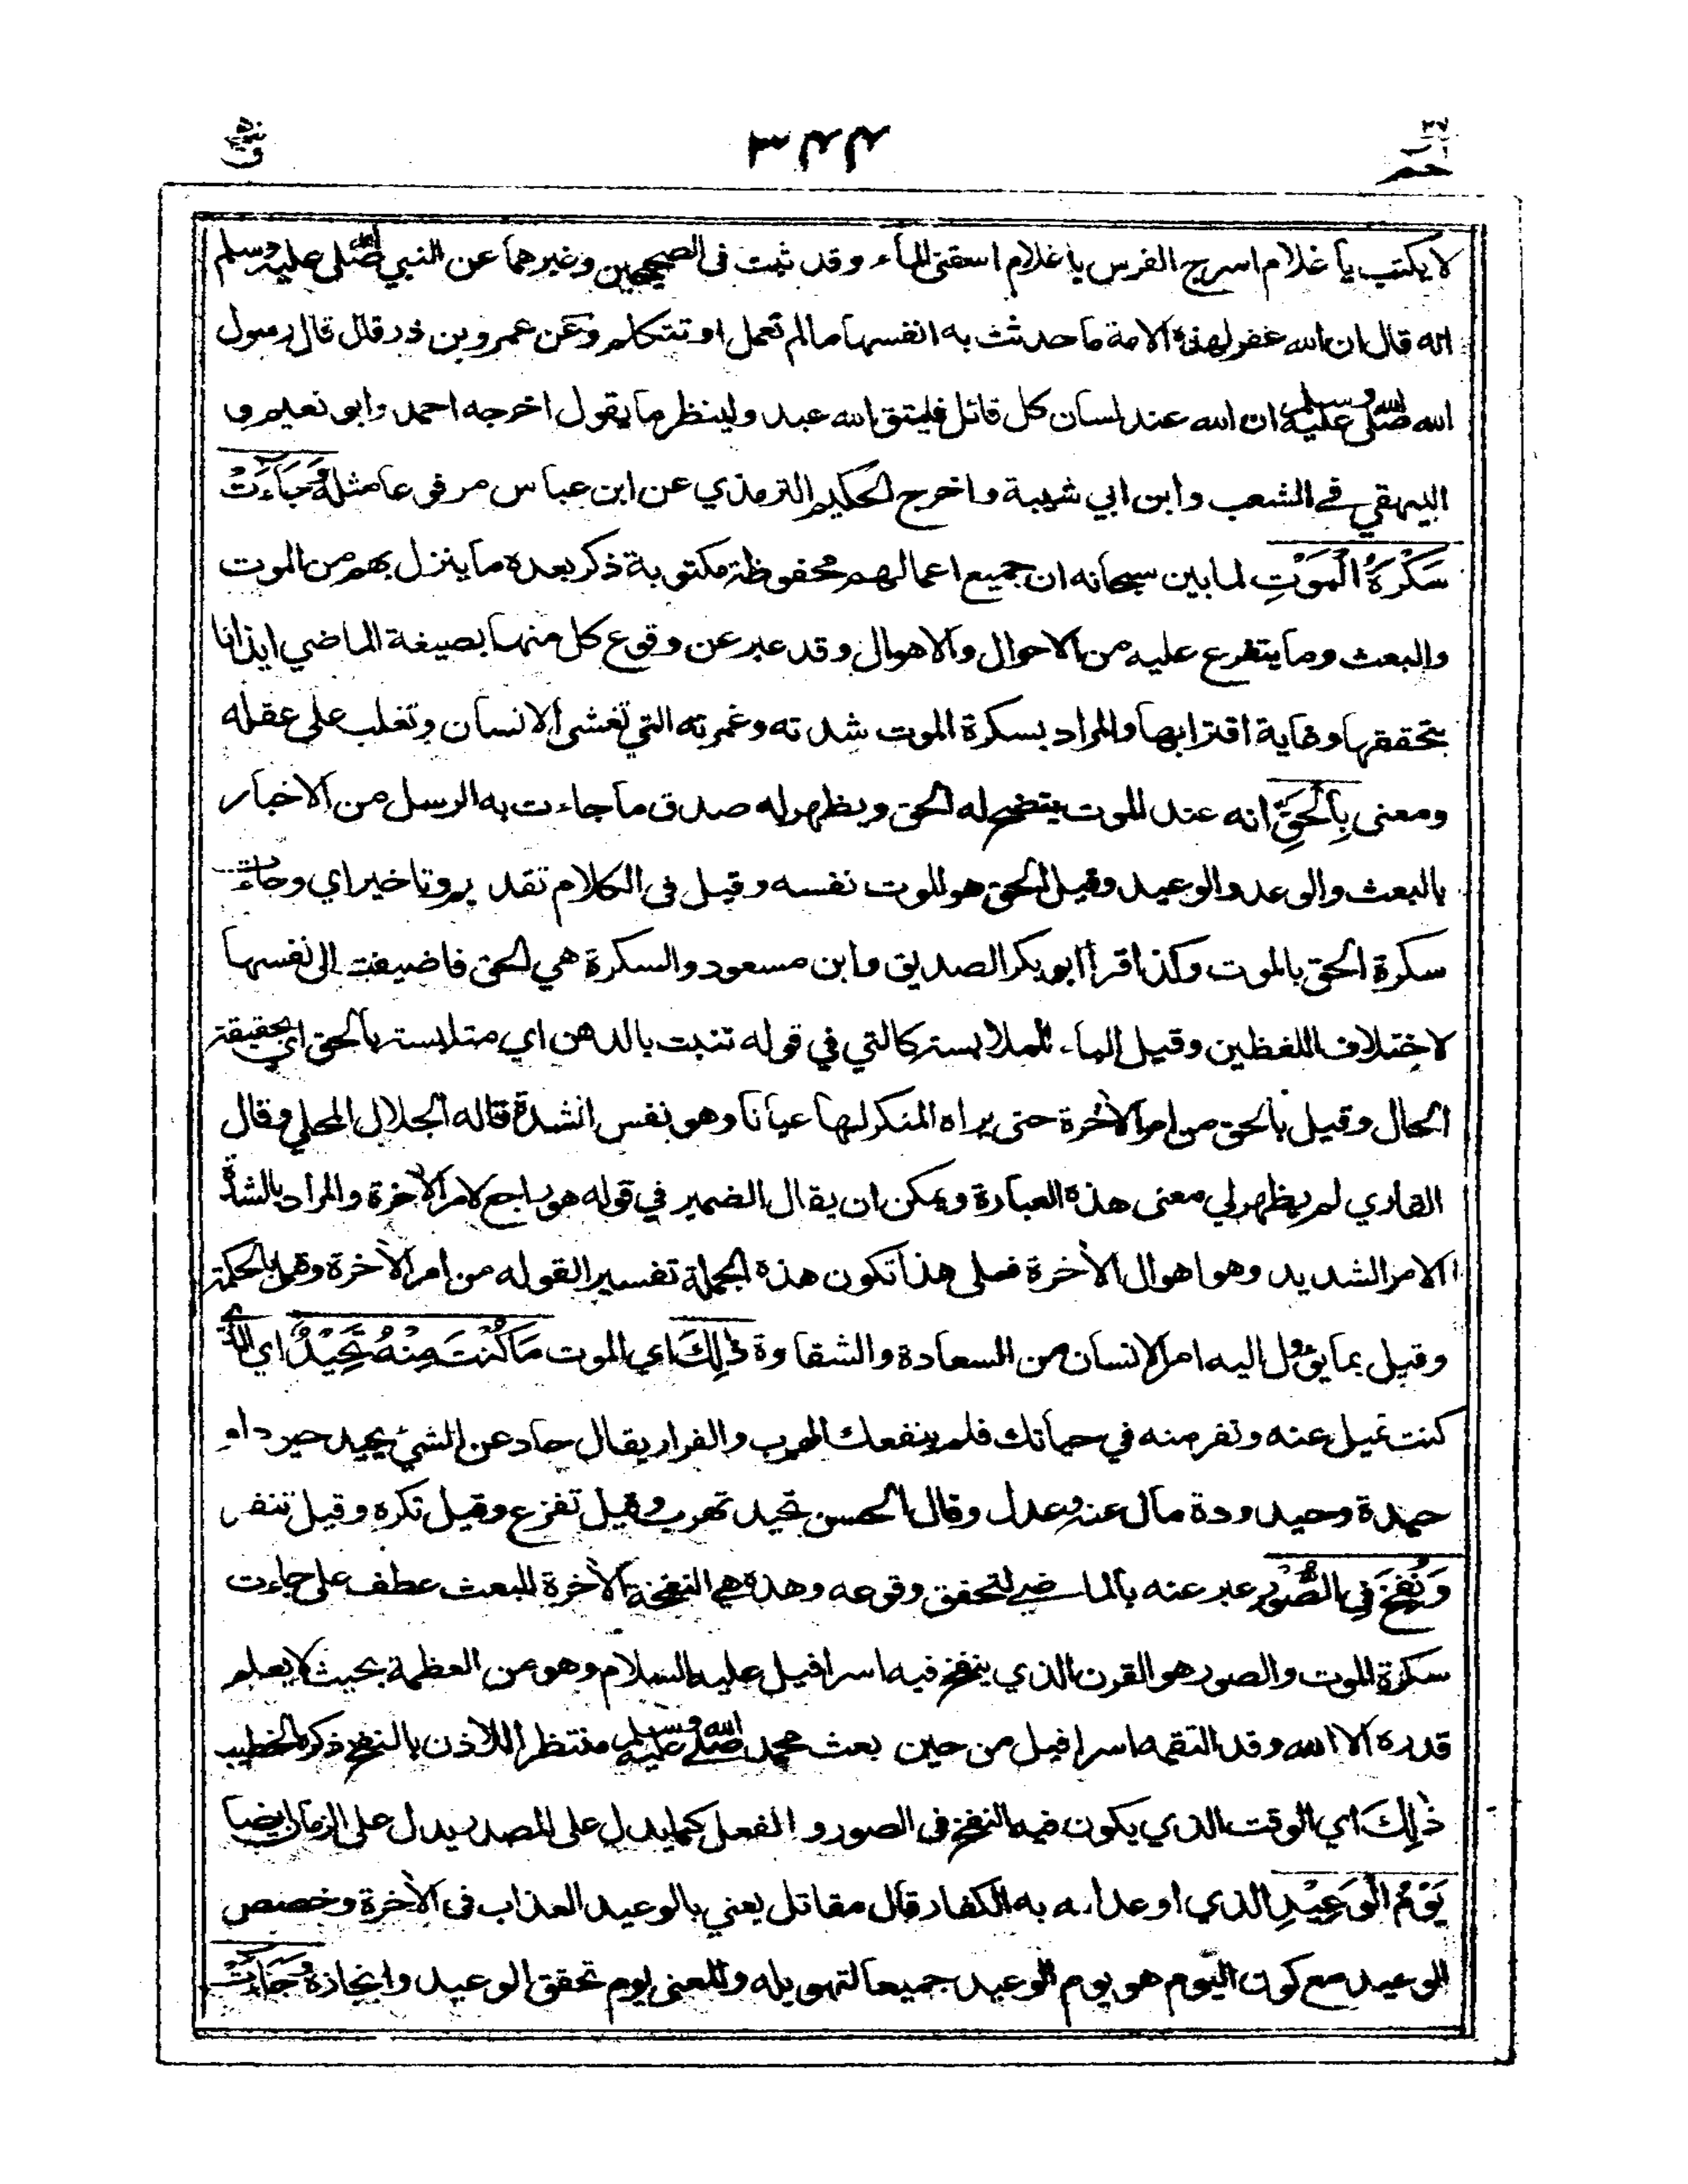 حم
ق
لا يكتب يا غلام اسرج الفرس يا غلام اسقني الماء وقد ثبت في الصحيحين وغيرهما عن النبي صلى الله عليه وسلم
انه قال ان الله غفر لهذه الامة ما حدثت به انفسها ما لم تعمل او تتكلم وعن عمرو بن ذر قال قال رسول
الله صلى الله عليه وسلم ان الله عند لسان كل قائل فليتق الله عبد ولينظر ما يقول اخرجه احمد وابو نعيم و
البيهقي في الشعب وابن ابي شيبة واخرج الحكيم الترمذي عن ابن عباس مرفوعا مثله وَجَاءَتْ
سَكْرَةُ الْمَوْتِ لما بين سبحانه ان جميع اعمالهم محفوظة مكتوبة ذكر بعده ما ينزل بهم من الموت
والبعث وما يتفرع عليه من الاحوال والاهوال وقد عبر عن وقوع كل منها بصيغة الماضي ايذانا
بتحققها وغاية اقترابها والمراد بسكرة الموت شدته وغمرته التي تغشى الانسان وتغلب على عقله
ومعنى بِالْحَقِّ انه عند الموت يتضح له الحق ويظهر له صدق ما جاءت به الرسل من الاخبار
بالبعث والوعد والوعيد وقيل الحق هو الموت نفسه وقيل في الكلام تقديم وتاخير اي وجاءت
سكرة الحق بالموت وكذا قرأ ابو بكر الصديق وابن مسعود والسكرة هي الحق فاضيفت الى نفسها
لاختلاف اللفظين وقيل الباء للملابسة كالتي في قوله تنبت بالدهن اي متلبسة بالحق اي بحقيقة
الحال وقيل بالحق من امر الآخرة حتى يراه المنكر لها عيانا وهو نفس الشدة قاله الجلال المحلي وقال
القاري لم يظهر لي معنى هذه العبارة ويمكن ان يقال الضمير في قوله هو راجع لامر الآخرة والمراد بالشدة
الامر الشديد وهو اهوال الآخرة فعلى هذا تكون هذه الجملة تفسيرا لقوله من امر الآخرة وقيل بالحكمة
وقيل بما يؤل اليه امر الانسان من السعادة والشقاوة ذٰلِكَ اي الموت مَا كُنْتَ مِنْهُ تَحِيْدُ اي الذي
كنت تميل عنه وتفر منه في حياتك فلم ينفعك الهرب والفرار يقال حاد عن الشيء يحيد حيودا و
حيدة وحيدودة مال عنه وعدل وقال الحسن تحيد تهرب وقيل تفزع وقيل تكره وقيل تنفر
وَنُفِخَ فِي الصُّوْرِ عبر عنه بالماضي لتحقق وقوعه وهذه هي النفخة الآخرة للبعث عطف على جاءت
سكرة الموت والصور هو القرن الذي ينفخ فيه اسرافيل عليه السلام وهو من العظمة بحيث لا يعلم
قدره الا الله وقد التقمه اسرافيل من حين بعث محمد صلى الله عليه وسلم منتظرا للاذن بالنفخ ذكره الخطيب
ذٰلِكَ اي الوقت الذي يكون فيه النفخ في الصور والفعل كما يدل على المصدر يدل على الزمان ايضا
يَوْمُ الْوَعِيْدِ الذي اوعد الله به الكفار قال مقاتل يعني بالوعيد العذاب في الآخرة وخصص
الوعيد مع كون اليوم هو يوم الوعيد جميعا لتهويله والمعنى يوم تحقق الوعيد وانجازه وَجَاءَتْ